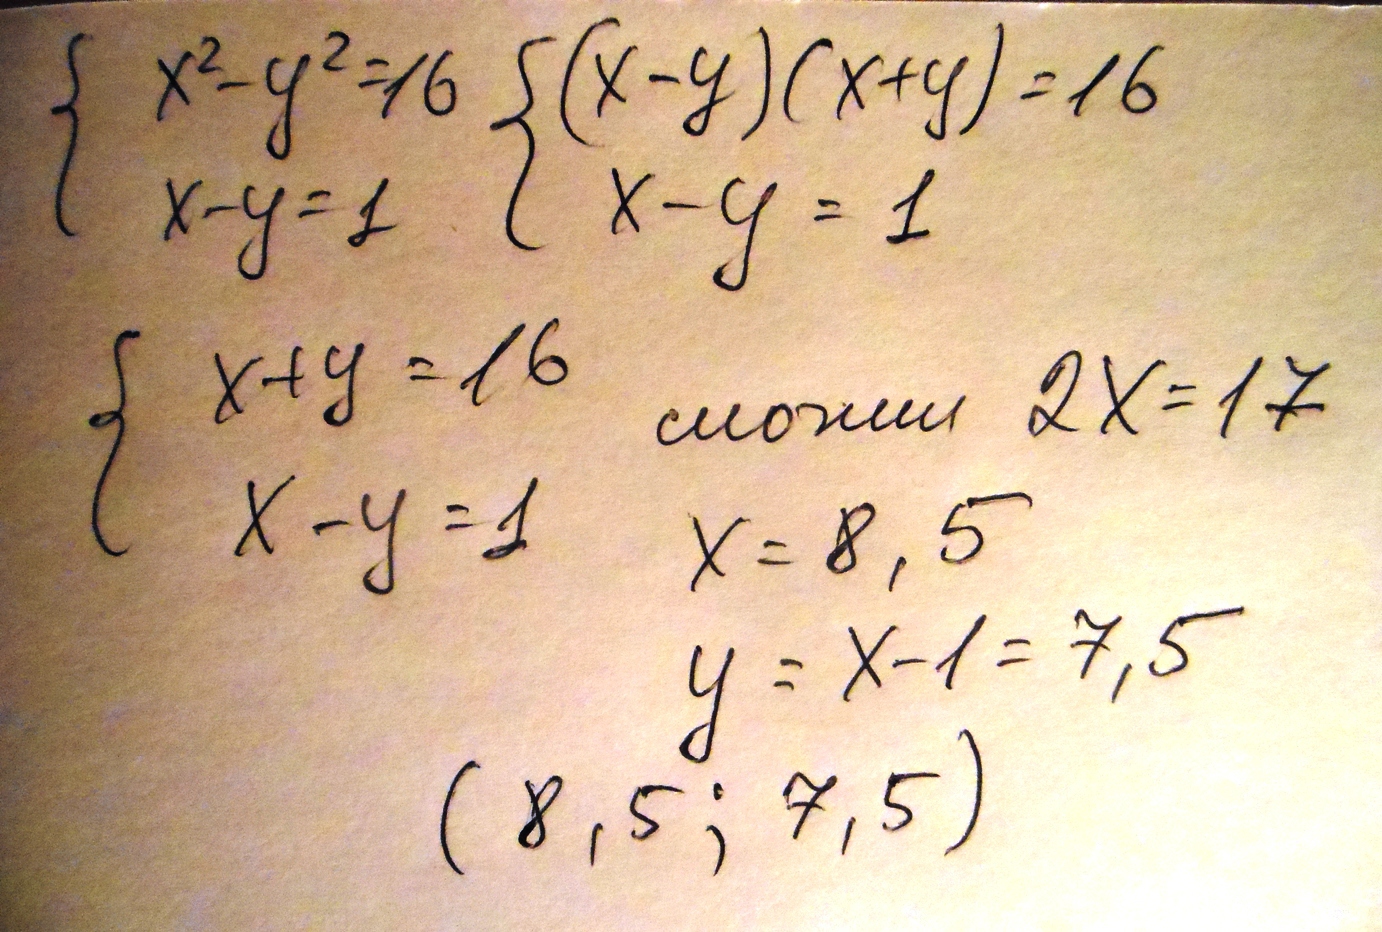 { x²-y²=16 { (x-y)(x+y)=16
x-y=1 x-y=1
{ x+y=16
x-y=1
сложим 2x=17
x=8,5
y=x-1=7,5
(8,5; 7,5)